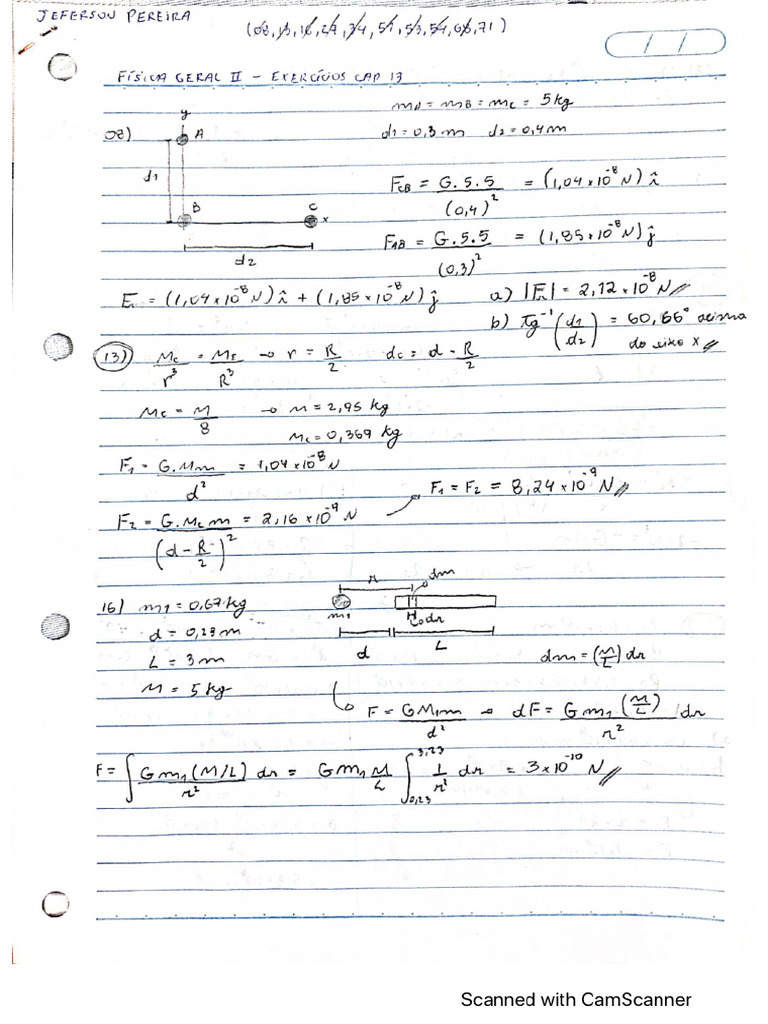 JEFERSON PEREIRA
(08, 13, 16, 27, 34, 51, 53, 54, 66, 71)
/ /
FÍSICA GERAL II - EXERCÍCIOS CAP 13
mA = mB = mC = 5 kg
08)
d1 = 0,3 m d2 = 0,4 m
y
A
d1
B
C
x
d2
FCB = G.5.5 / (0,4)² = (1,04 x 10⁻⁸ N) î
FAB = G.5.5 / (0,3)² = (1,85 x 10⁻⁸ N) ĵ
= (1,04 x 10⁻⁸ N) î + (1,85 x 10⁻⁸ N) ĵ
a) |Fr| = 2,12 x 10⁻⁸ N //
b) Tg⁻¹ (d1/d2) = 60,66° acima do eixo x //
13) Mc/r³ = MF/R³ → r = R/2 dc = d - R/2
Mc = M/8 → M = 2,95 kg
Mc = 0,369 kg
F1 = G.Mm / d² = 1,04 x 10⁻⁸ N
F1 = F2 = 8,24 x 10⁻⁹ N //
F2 = G.Mc m / (d - R/2)² = 2,16 x 10⁻⁹ N
16) m1 = 0,67 kg
d = 0,23 m
L = 3 m
M = 5 kg
r
dm
m1
dr
d
L
dm = (M/L) dr
F = GM1m / d² → dF = G m1 (M/L) dr / r²
F = ∫ G m1 (M/L) dr / r² = G m1 M/L ∫ 0,23 3,23 1/r² dr = 3 x 10⁻¹⁰ N //
Scanned with CamScanner